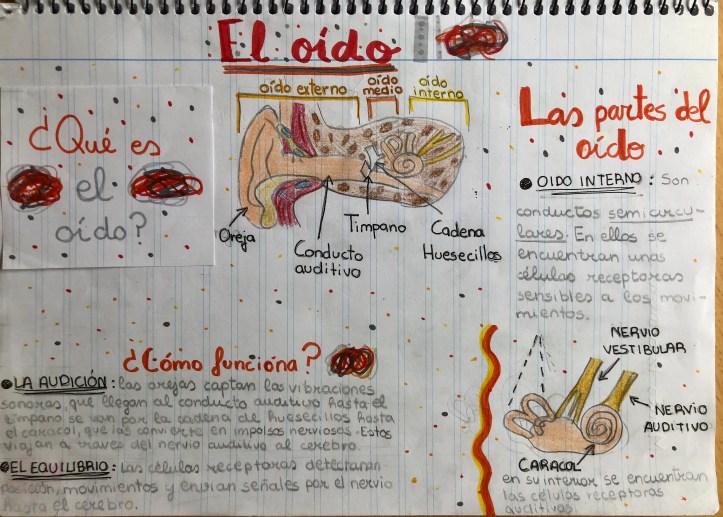 El oído
¿Qué es
el
oído?
oído externo
oído
medio
oído
interno
Oreja
Conducto
auditivo
Timpano
Cadena
Huesecillos
Las partes del
oído
OIDO INTERNO: Son
conductos semicircu-
lares. En ellos se
encuentran unas
células receptoras
sensibles a los movi-
mientos.
¿Cómo funciona?
LA AUDICIÓN: las orejas captan las vibraciones
sonoras, que llegan al conducto auditivo hasta el
tímpano se van por la cadena de huesecillos hasta
el caracol, que las convierte en impolsos nerviosos. Estos
viajan a traves del nervio auditivo al cerebro.
EL EQUILIBRIO: las células receptoras detectan
posición, movimientos y envian señales por el nervio
hasta el cerebro.
NERVIO
VESTIBULAR
NERVIO
AUDITIVO
CARACOL
en su interior se encuentran
las células receptoras
auditivas